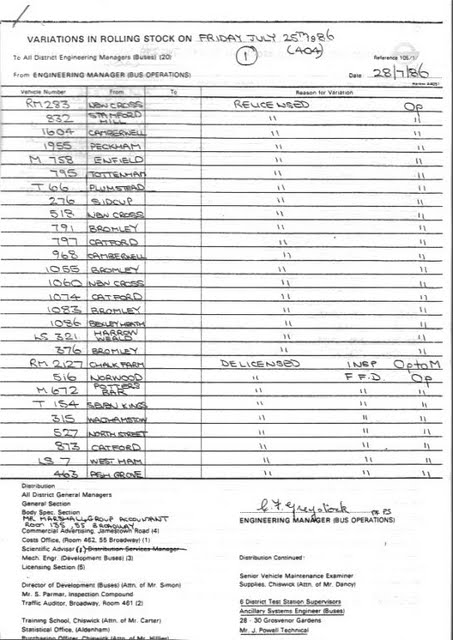 VARIATIONS IN ROLLING STOCK ON FRIDAY JULY 25TH 1986
(404)
1
To All District Engineering Managers (Buses) (20)
Reference 105/
From ENGINEERING MANAGER (BUS OPERATIONS)
Date 28/7/86
Vehicle Number From To Reason for Variation
RM 283 NEW CROSS RELICENSED Op
832 STAMFORD HILL " "
1604 CAMBERWELL " "
1955 PECKHAM " "
M 758 ENFIELD " "
795 TOTTENHAM " "
T 66 PLUMSTEAD " "
276 SIDCUP " "
518 NEW CROSS " "
791 BROMLEY " "
797 CATFORD " "
968 CAMBERWELL " "
1055 BROMLEY " "
1060 NEW CROSS " "
1074 CATFORD " "
1083 BROMLEY " "
1086 BEXLEYHEATH " "
LS 321 HARROW WEALD " "
376 BROMLEY " "
RM 2127 CHALK FARM DELICENSED INSP Op to M
516 NORWOOD " F.F.D. Op
M 672 POTTERS BAR " " "
T 154 SEVEN KINGS " " "
315 WALTHAMSTOW " " "
527 NORTH STREET " " "
873 CATFORD " " "
LS 7 WEST HAM " " "
463 ASH GROVE " " "
Distribution
All District General Managers
General Section
Body Spec. Section
MR MARSHALL, GROUP ACCOUNTANT
ROOM 135, 55 BROADWAY
ENGINEERING MANAGER (BUS OPERATIONS)
Commercial Advertising, Jamestown Road (4)
Costs Office, (Room 462, 55 Broadway) (1)
Scientific Advisor (1) Distribution Services Manager
Mech. Engr. (Development Buses) (3)
Distribution Continued:
Licensing Section (5)
Senior Vehicle Maintenance Examiner
Director of Development (Buses) (Attn. of Mr. Simon)
Supplies, Chiswick (Attn. of Mr. Dancy)
Mr. S. Parmar, Inspection Compound
Traffic Auditor, Broadway, Room 461 (2)
6 District Test Station Supervisors
Ancillary Systems Engineer (Buses)
Training School, Chiswick (Attn. of Mr. Carter)
28 - 30 Grosvenor Gardens
Statistical Office, (Aldenham)
Mr. J. Powell Technical
Purchasing Officer, Chiswick (Attn. of Mr.